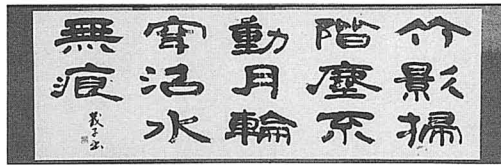 竹影掃
階塵不
動月輪
穿沼水
無痕